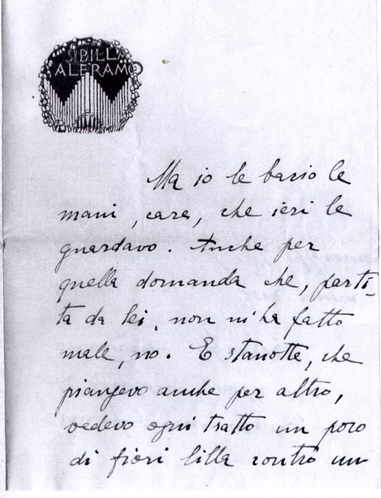 SIBILLA
ALERAMO
Ma io le bacio le
mani, cara, che ieri le
guardavo. Anche per
quella domanda che, parti-
ta da lei, non mi ha fatto
male, no. E stanotte, che
piangevo anche per altro,
vedevo ogni tratto un poco
di fiori lilla contro un